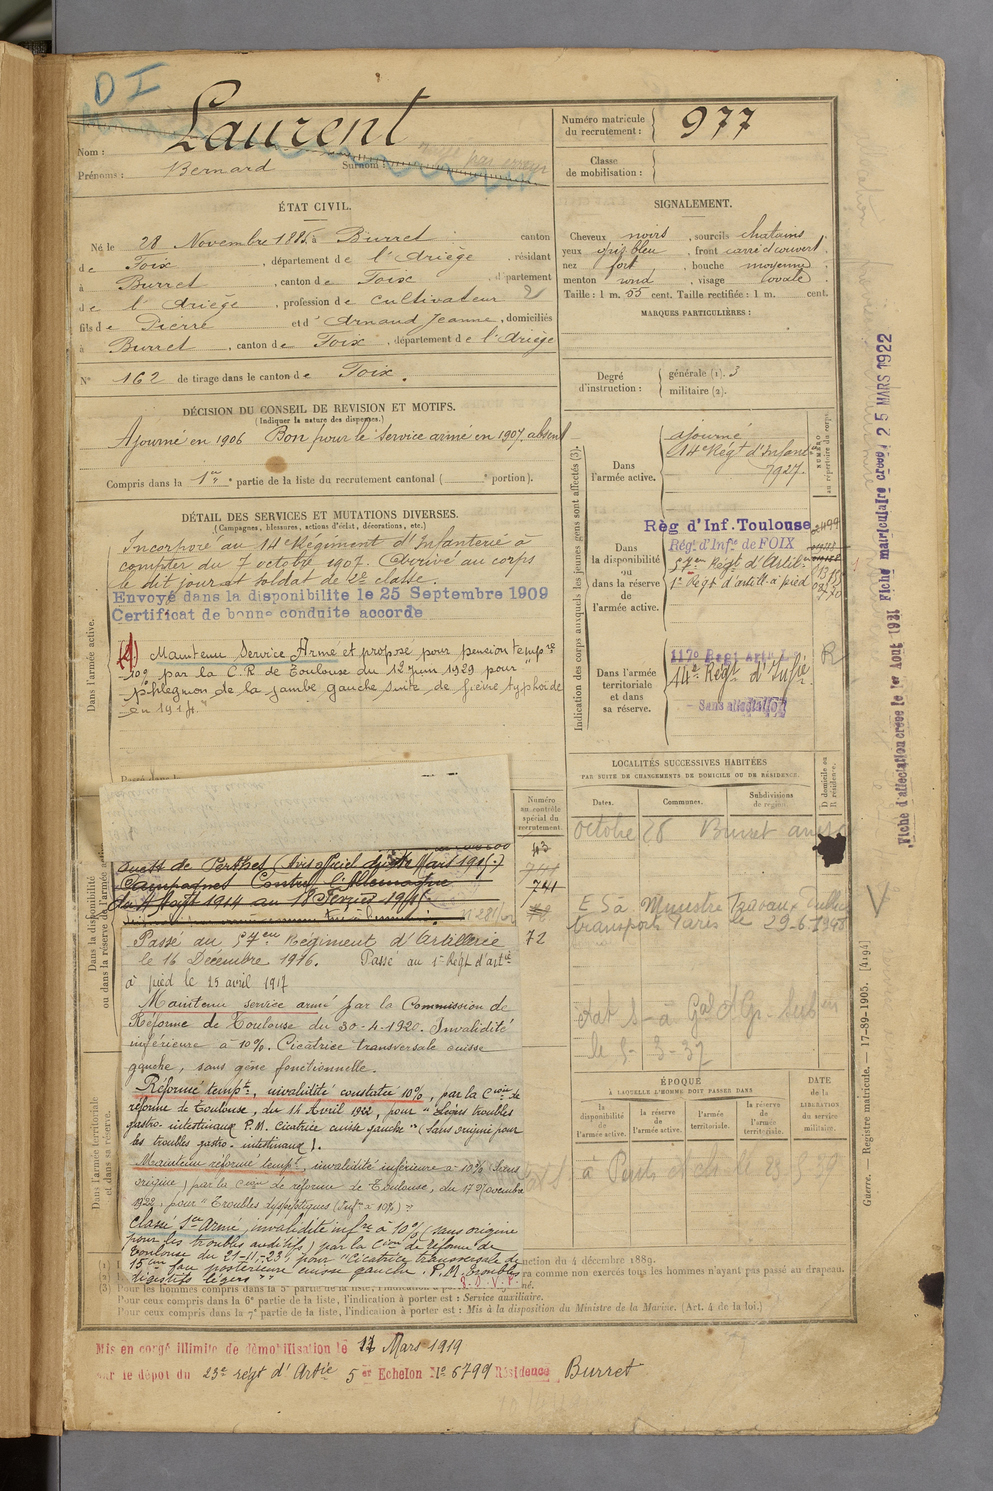 D I
Nom : Laurent
Prénoms : Bernard Surnom :
Numéro matricule du recrutement : 977
Classe de mobilisation :
ÉTAT CIVIL.
Né le 28 Novembre 1885 à Burret canton
de Foix, département de l'Ariège, résidant
à Burret, canton de Foix, département
de l'Ariège, profession de cultivateur
fils de Pierre et d'Arnaud Jeanne, domiciliés
à Burret, canton de Foix, département de l'Ariège
N° 162 de tirage dans le canton de Foix.
SIGNALEMENT.
Cheveux noirs, sourcils chatains
yeux gris bleu, front carré et couvert
nez fort, bouche moyenne,
menton rond, visage ovale
Taille : 1 m. 55 cent. Taille rectifiée : 1 m. cent.
MARQUES PARTICULIÈRES :
Degré d'instruction : générale (1). 3
militaire (2).
DÉCISION DU CONSEIL DE REVISION ET MOTIFS.
(Indiquer la nature des dispenses.)
Ajourné en 1906 Bon pour le service armé en 1907. absent
Compris dans la 1re partie de la liste du recrutement cantonal ( portion).
DÉTAIL DES SERVICES ET MUTATIONS DIVERSES.
(Campagnes, blessures, actions d'éclat, décorations, etc.)
Incorporé au 14e Régiment d'Infanterie à
compter du 7 octobre 1907. Arrivé au corps
le dit jour et soldat de 2e classe.
Envoyé dans la disponibilite le 25 Septembre 1909
Certificat de bonne conduite accorde
Dans l'armée active.
Maintenu Service Armé et proposé pour pension tempre
10% par la C.R de Toulouse du 12 juin 1929 pour "
phlegmon de la jambe gauche suite de fièvre typhoide
en 1914."
Indication des corps auxquels les jeunes gens sont affectés (3).
Dans l'armée active.
ajourné
14e Régt d'Infanterie
7927.
NUMÉRO au répertoire du corps.
Dans la disponibilité ou dans la réserve de l'armée active.
Règ d'Inf. Toulouse
Régt d'Infie de FOIX
57em Régt d'Artil
1er Régt d'artill à pied
Dans l'armée territoriale et dans sa réserve.
117e Regt Art L
14e Régt d'Infie
Sans affectation
R
Fiche d'affectation creee le 1er Aout 1921 Fiche matriculaire creee 25 MARS 1922
LOCALITÉS SUCCESSIVES HABITÉES
PAR SUITE DE CHANGEMENTS DE DOMICILE OU DE RÉSIDENCE.
Dates. Communes. Subdivisions de région. D domicile ou R résidence.
octobre 26 Burret
E S à Ministre Travaux Publics
transports Paris le 29-6-1948
le 5-3-37
Numéro au contrôle spécial du recrutement.
43
741
741
72
Dans la disponibilité ou dans la réserve de l'armée active.
ouest de Perthes (Avis officiel du Mars 1915.)
Campagnes Contre l'Allemagne
du 4 Août 1914 au 18 Février 1915
Passé au 57em Régiment d'Artillerie
le 16 Décembre 1916. Passé au 1er Régt d'artie
à pied le 25 avril 1917
Maintenu service armé par la Commission de
Réforme de Toulouse du 30-4-1920. Invalidité
inférieure à 10%. Cicatrice transversale cuisse
gauche, sans gêne fonctionnelle.
Réformé tempt, invalidité constatée 10%, par la Cion de
réforme de Toulouse, du 14 Avril 1922, pour "Légers troubles
gastro-intestinaux P.M. cicatrice cuisse gauche" (sans origine pour
les troubles gastro-intestinaux).
Maintenu réformé tempt, invalidité inférieure à 10% (sans
origine) par la Cion de réforme de Toulouse, du 17 Novembre
1922, pour "Troubles dyspeptiques (Inf. à 10%)"
Classé Sce Armé, invalidité infre à 10% (sans origine
pour les troubles auditifs) par la Cion de Réforme de
Toulouse du 21-11-23, pour "cicatrice transversale de
15cm face postérieure cuisse gauche, P.M. Troubles
digestifs légers"
Dans l'armée territoriale et dans sa réserve.
ÉPOQUE
À LAQUELLE L'HOMME DOIT PASSER DANS
la disponibilité de l'armée active. la réserve de l'armée active. l'armée territoriale. la réserve de l'armée territoriale.
DATE de la LIBÉRATION du service militaire.
ction du 4 décembre 1889.
ra comme non exercés tous les hommes n'ayant pas passé au drapeau.
Pour ceux compris dans la 6e partie de la liste, l'indication à porter est : Service auxiliaire.
Pour ceux compris dans la 7e partie de la liste, l'indication à porter est : Mis à la disposition du Ministre de la Marine. (Art. 4 de la loi.)
Guerre. — Registre matricule. — 17-89-1905. [4194]
Mis en congé illimite de démobilisation le 17 Mars 1919
sur le dépôt du 23e régt d'Artie 5er Echelon No 6799 Résidence Burret